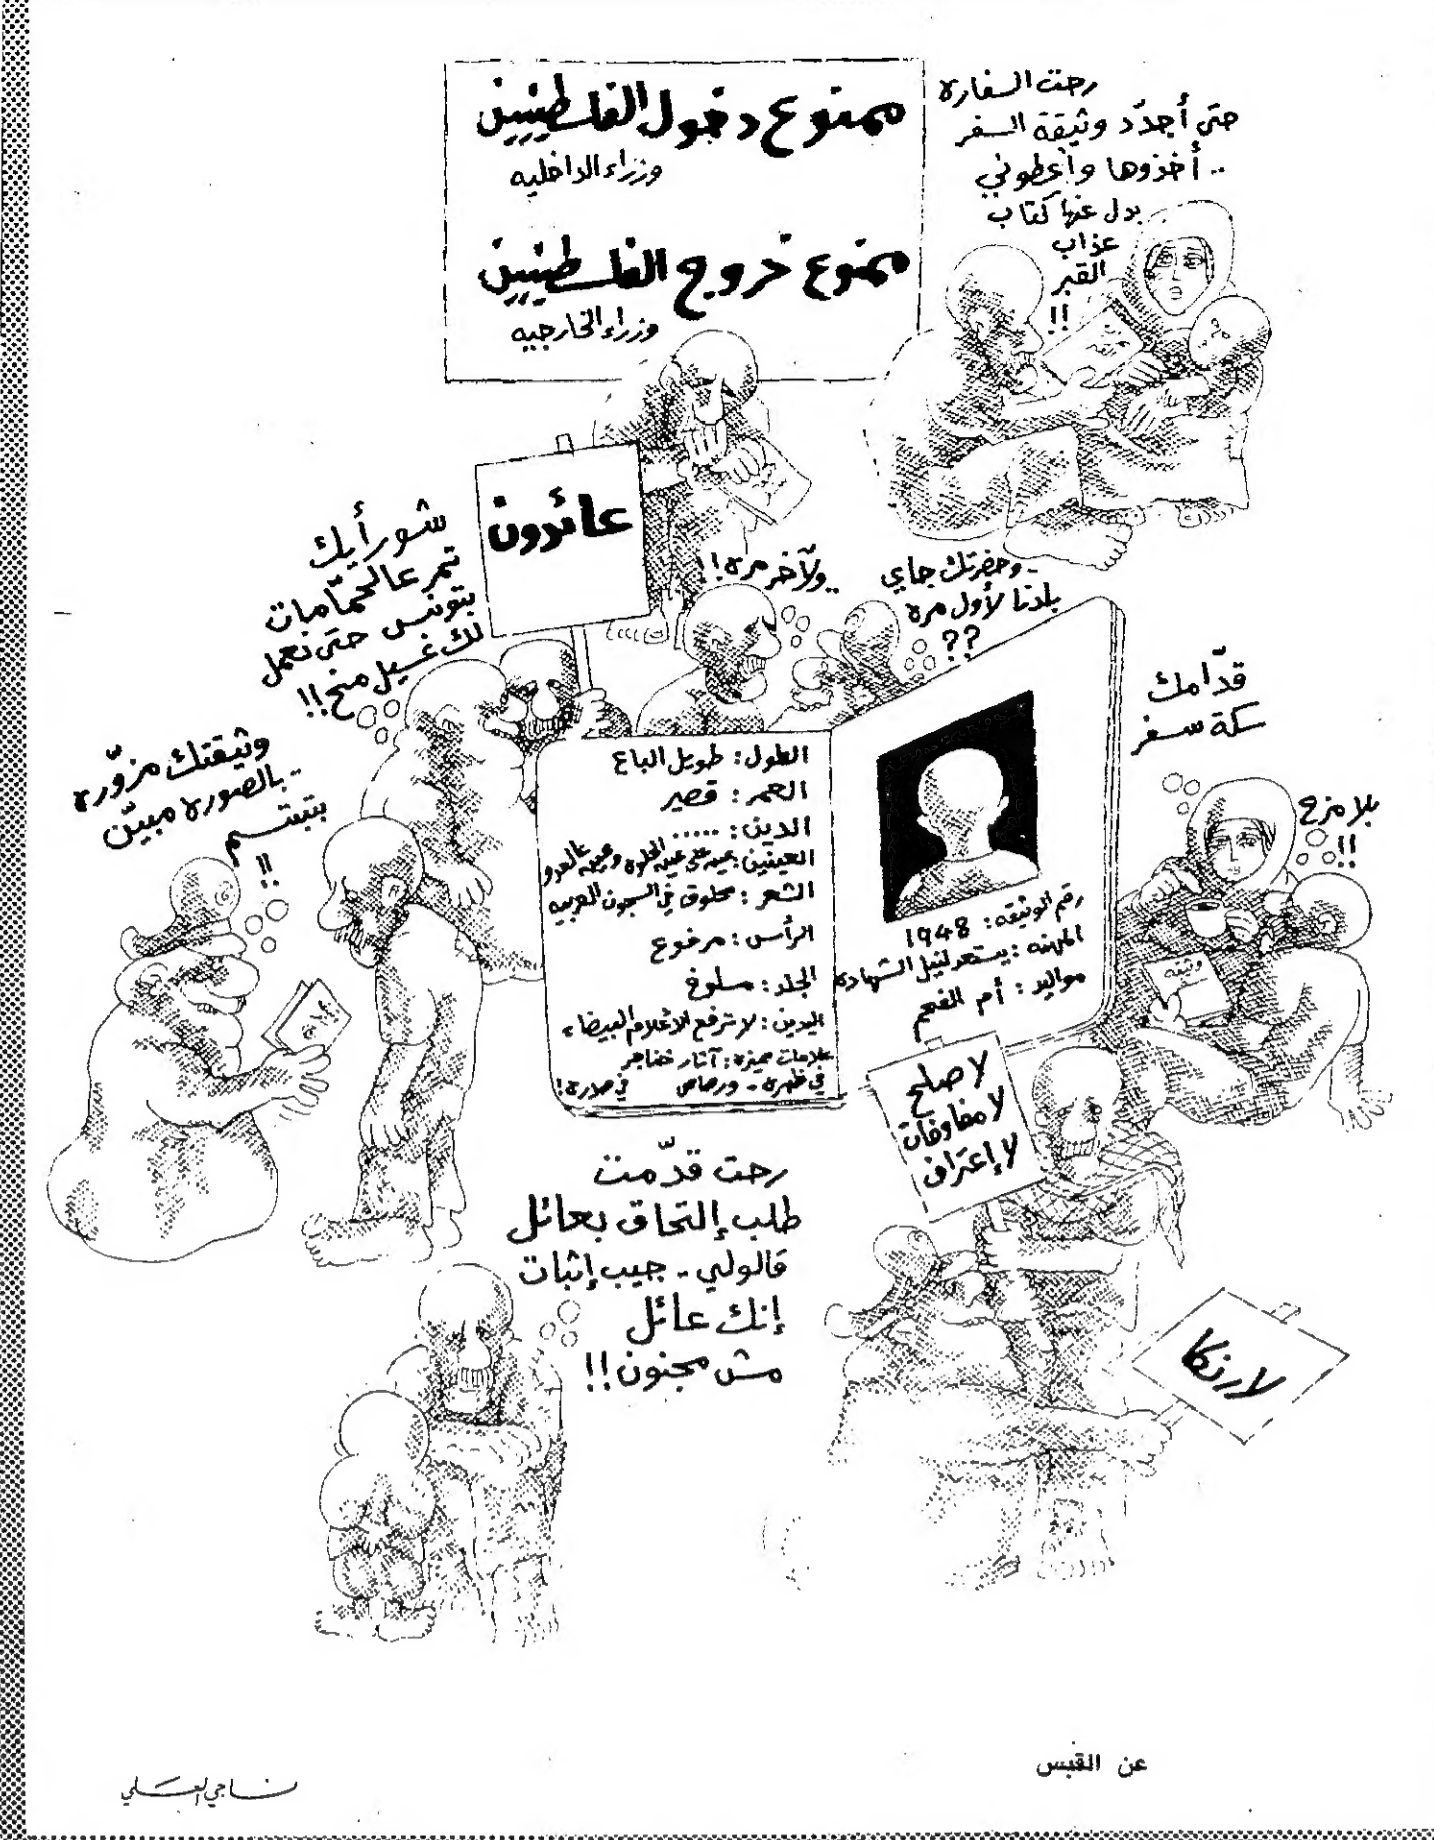 ممنوع دخول الفلسطينيين
وزراء الداخليه
ممنوع خروج الفلسطينيين
وزراء الخارجيه
رحت السفاره
حتى أجدّد وثيقة السفر
.. أخذوها واعطوني
بدل عنها كتاب
عذاب
القبر
!!
عائدون
شو رأيك
تمر عالحمّامات
بتونس حتى نعمل
لك غسيل مخ!!
..ولآخر مره!!
.. وحضرتك جاي
بلدنا لأول مره
??
قدّامك
سكة سفر
بلا مزح
!!
وثيقتك مزوّره
.. بالصوره مبيّن
بتبتسم
!!
الطول: طويل الباع
العمر: قصير
الدين: .....
العينين: بعينه على عين الحلوه وعينه عالعدو
الشعر: محلوق في السجون العربيه
الرأس: مرفوع
الجلد: مسلوخ
اليدين: لا ترفع الاعلام البيضاء
علامات مميزه: آثار خناجر
في ظهره .. ورصاص في صدره!
رقم الوثيقه: ١٩٤٨
المهنه: يستعد لنيل الشهاده
مواليد: أم الفحم
وثيقه
لا صلح
لا مفاوضات
لا إعتراف
لارنكا
رحت قدّمت
طلب إلتحاق بعائل
قالولي .. جيب إثبات
إنك عائل
مش مجنون!!
عن القبس
ناجي العلي